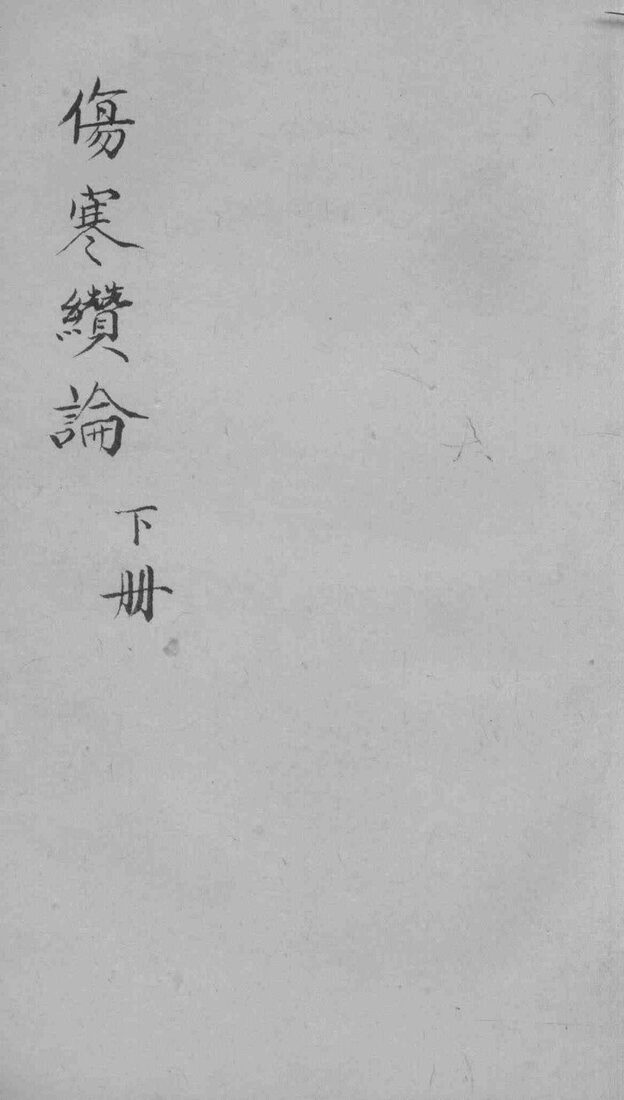 傷寒纘論
下册